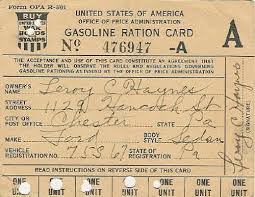 Form OPA R-301
BUY
WAR
BONDS
STAMPS
UNITED STATES OF AMERICA
OFFICE OF PRICE ADMINISTRATION
GASOLINE RATION CARD
No 476947 -A
A
THE ACCEPTANCE AND USE OF THIS CARD CONSTITUTE AN AGREEMENT THAT
THE HOLDER WILL OBSERVE THE RULES AND REGULATIONS GOVERNING
GASOLINE RATIONING AS ISSUED BY THE OFFICE OF PRICE ADMINISTRATION
OWNER'S NAME Leroy C Haynes
STREET ADDRESS 1129 Hancock St
CITY OR POST OFFICE Chester STATE Pa
MAKE Ford BODY STYLE Sedan
VEHICLE REGISTRATION NO. 75J67 STATE OF REGISTRATION Pa
READ INSTRUCTIONS ON REVERSE SIDE OF CARD
ONE UNIT ONE UNIT ONE UNIT ONE UNIT ONE UNIT ONE UNIT
Leroy C Haynes
(SIGNATURE)